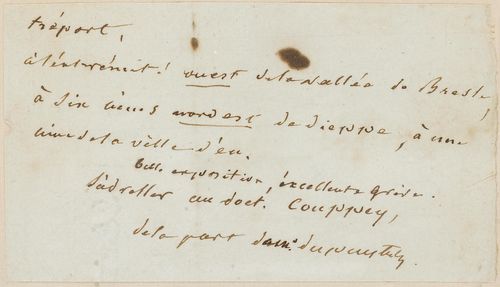 tréport,
à l'extrémité ouest de la vallée de Bresle,
à six lieues nord est de dieppe, à une
lieue de la ville d'eu.
belle exposition, excellente grève.
s'adresser au doct. Couppey,
de la part de mr.